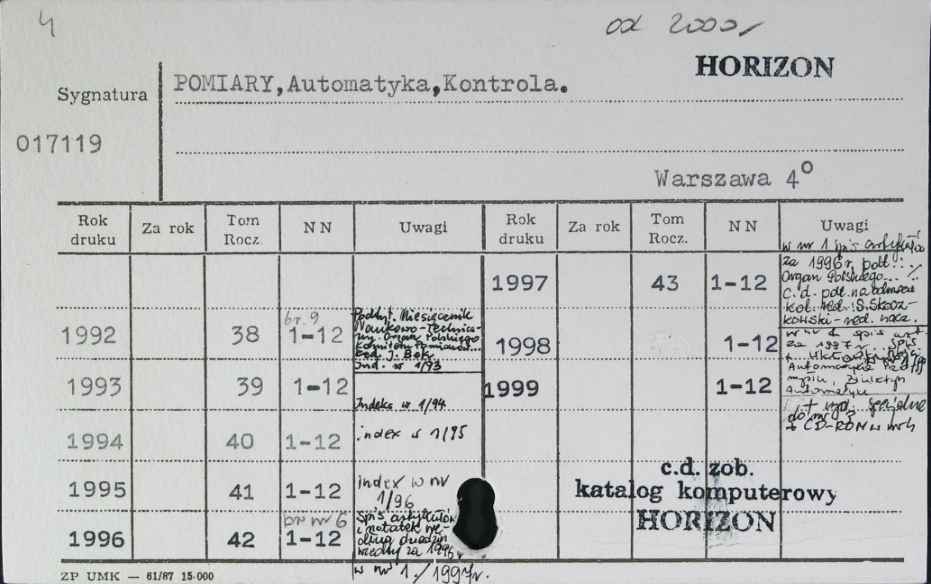 4
od 2000r
HORIZON
Sygnatura
POMIARY,Automatyka,Kontrola.
017119
Warszawa 4º
Rok druku Za rok Tom Rocz. NN Uwagi Rok druku Za rok Tom Rocz. NN Uwagi
w nr 1 spis artykułów
za 1996 r. podt...
Organ Polskiego...
1997 43 1-12
c.d. podt. na odwrocie
kol. red. S. Skocz-
kowski - red. nacz.
1992 38 br. 9 1-12
Podtyt. Miesięcznik
Naukowo-Technicz-
ny. Organ Polskiego
Komitetu Pomiarów...
Red. J. Bek
Ind. w 1/93
1998 1-12
w nr 1 spis art
za 1997 r.
1993 39 1-12
Indeks w 1/94
1999 1-12
Automatyka
+ wyd. specjalne
do nr
+ CD-ROM w nrh
1994 40 1-12 index w 1/95
1995 41 1-12
index w nr
1/96
c.d. zob.
katalog komputerowy
HORIZON
1996 42 br nr 6 1-12
Spis artykułów
i notatek we-
dług dziedzin
wiedzy za 1996 r.
w nr 1/1997r.
ZP UMK — 61/87 15·000